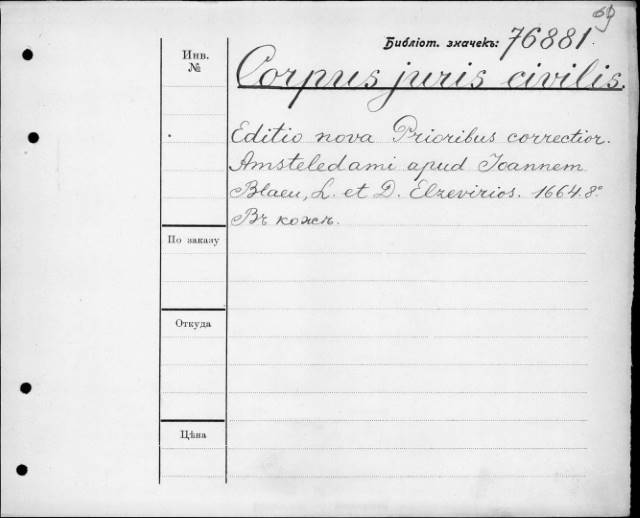 69
Библіот. значекъ: 76881.
Инв.
№
Corpus juris civilis.
Editio nova Prioribus correctior.
Amsteledami apud Ioannem
Blaeu, L. et D. Elzevirios. 1664. 8°
Въ кожѣ.
По заказу
Откуда
Цѣна